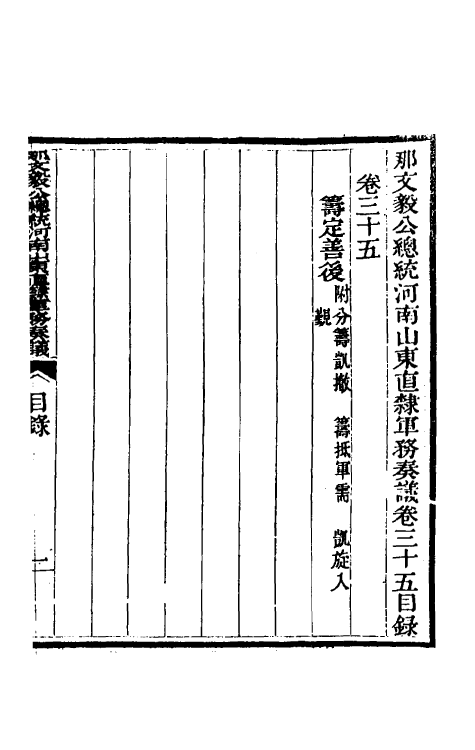 那文毅公總統河南山東直隸軍務奏議卷三十五目錄
卷三十五
籌定善後附分籌凱撤 籌抵軍需 凱旋入
覲
那文毅公總統河南山東直隸軍務奏議
目錄
一